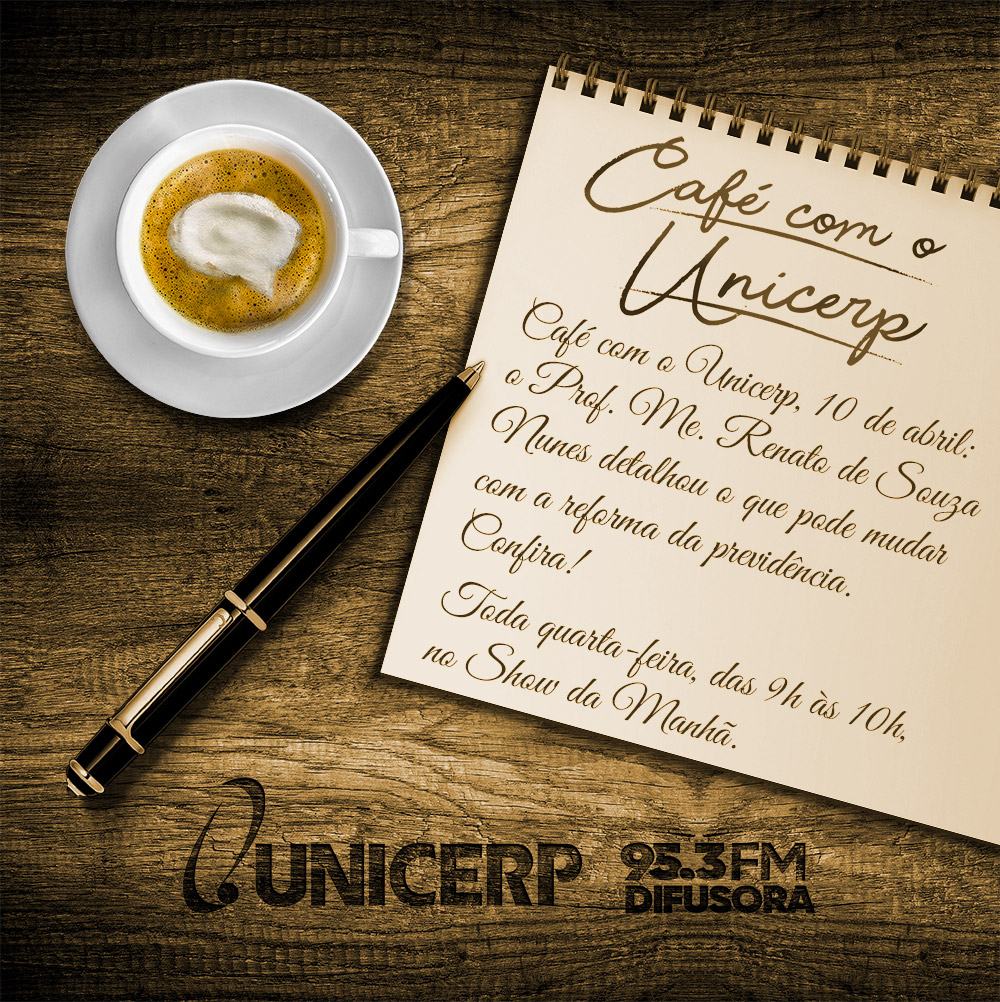 Café com o
Unicerp
Café com o Unicerp, 10 de abril:
o Prof. Me. Renato de Souza
Nunes detalhou o que pode mudar
com a reforma da previdência.
Confira!
Toda quarta-feira, das 9h às 10h,
no Show da Manhã.
UNICERP
95.3FM
DIFUSORA